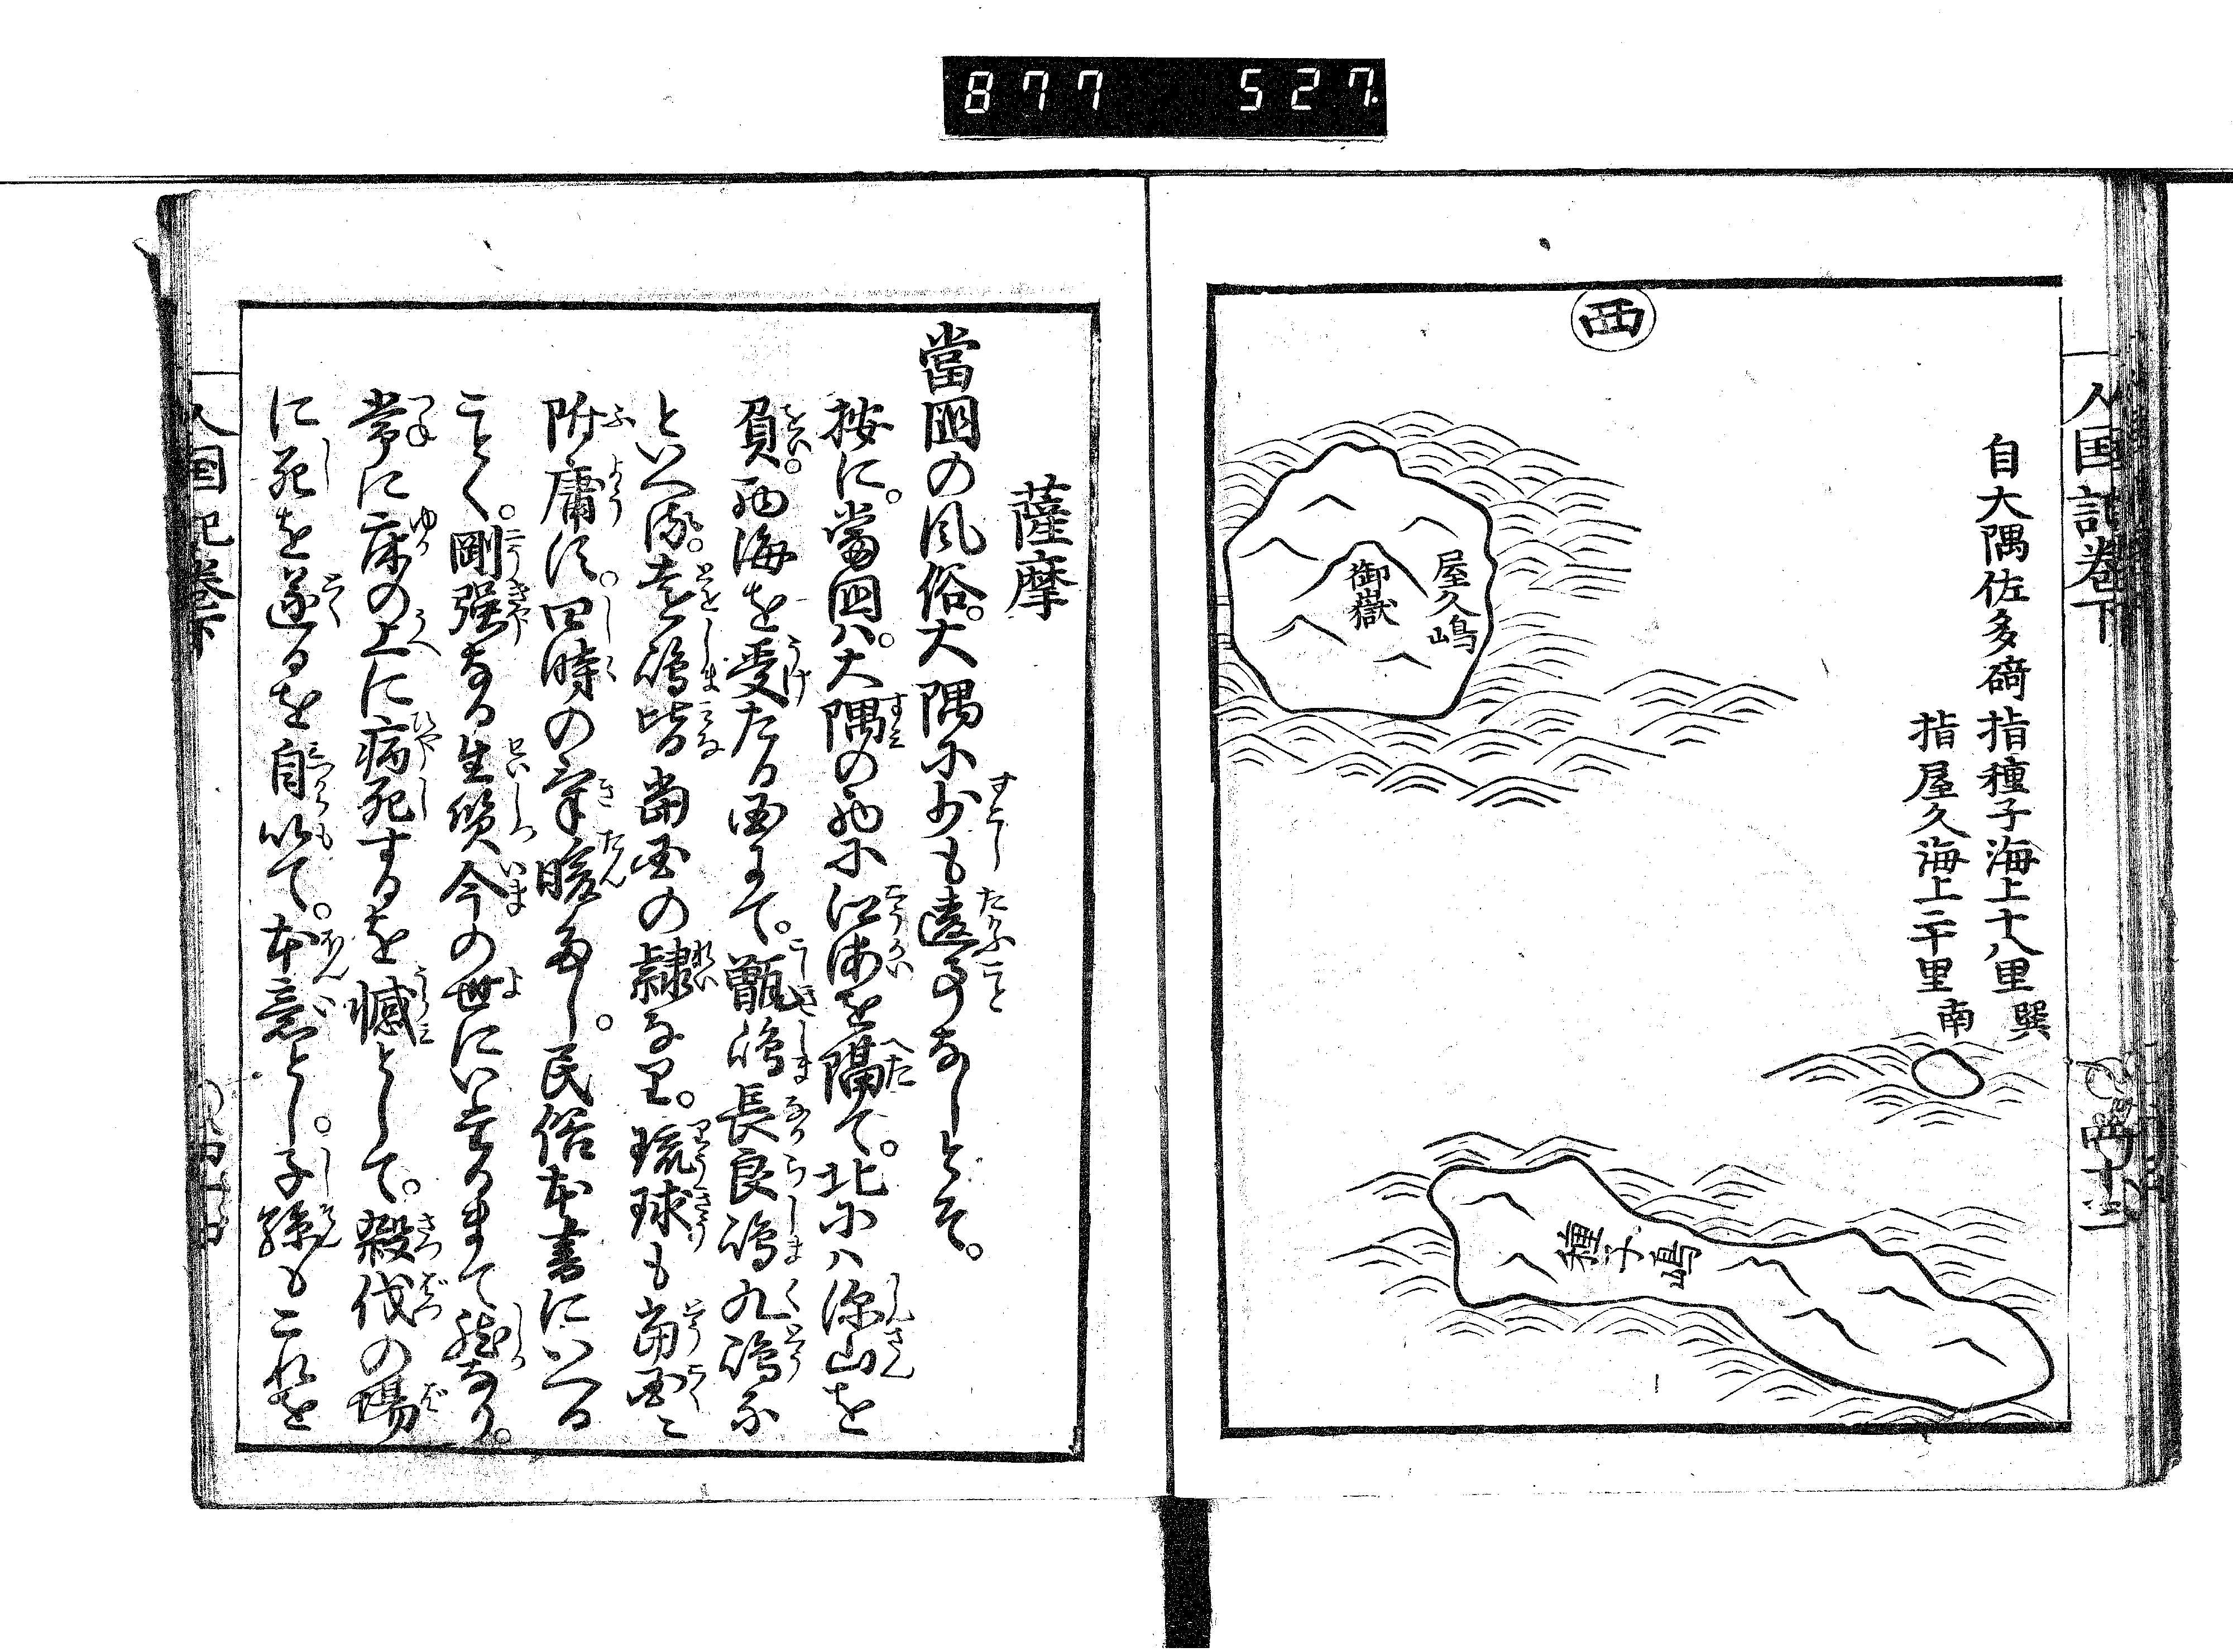 877 527
人国記巻下
自大隅佐多﨑指種子海上十八里巽
指屋久海上二十里南
西
屋久嶋
御嶽
種子嶋
薩摩
當国の風俗。大隅に少も違事なしとぞ。
按に。當国ハ。大隅の西に江海を隔て。北にハ深山を
負。西海を受たる国にて。甑嶋長良嶋九嶋な
どいへる。遠嶋皆當国の隷なり。琉球も當国に
附庸す。四時の寒暖多し。民俗本書にいへる
ごとく。剛強なる生質今の世にいたるまで然なり。
常に床の上に病死するを憾として。殺伐の場
に死を遂るを自以て。本意とし。子孫もこれを
人国記巻下